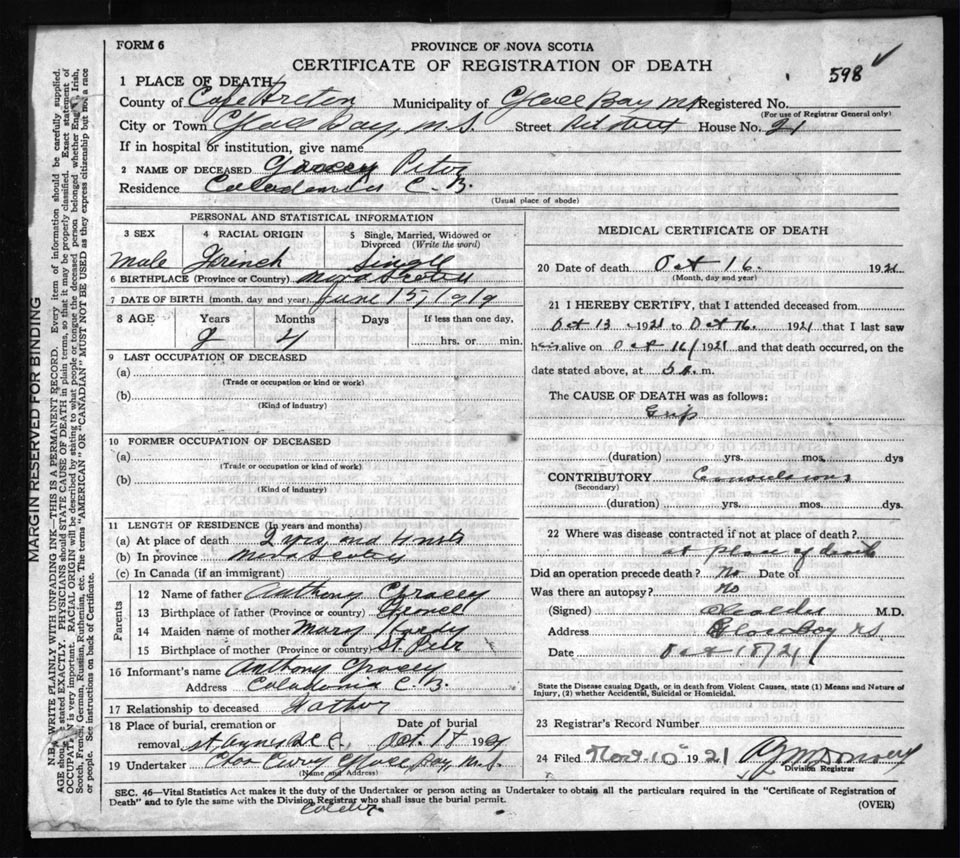 FORM 6
PROVINCE OF NOVA SCOTIA
CERTIFICATE OF REGISTRATION OF DEATH
598
1 PLACE OF DEATH
County of Cape Breton Municipality of Glace Bay Registered No.
(For use of Registrar General only)
City or Town Glace Bay, N.S. Street House No. 21
If in hospital or institution, give name
2 NAME OF DECEASED Gracey Peter
Residence Caladonia C. B.
(Usual place of abode)
PERSONAL AND STATISTICAL INFORMATION
3 SEX 4 RACIAL ORIGIN 5 Single, Married, Widowed or Divorced (Write the word)
Male French Single
6 BIRTHPLACE (Province or Country) Nova Scotia
7 DATE OF BIRTH (month, day and year) June 15, 1919
8 AGE Years Months Days If less than one day,
2 4 hrs. or min.
9 LAST OCCUPATION OF DECEASED
(a)
(Trade or occupation or kind of work)
(b)
(Kind of industry)
10 FORMER OCCUPATION OF DECEASED
(a)
(Trade or occupation or kind of work)
(b)
(Kind of industry)
11 LENGTH OF RESIDENCE (In years and months)
(a) At place of death 2 yrs, and 4 mts
(b) In province Nova Scotia
(c) In Canada (if an immigrant)
Parents
12 Name of father Anthony Gracey
13 Birthplace of father (Province or country) France
14 Maiden name of mother Mary Hardy
15 Birthplace of mother (Province or country) St. Peir
16 Informant's name Anthony Gracey
Address Caladonia C. B.
17 Relationship to deceased Father
18 Place of burial, cremation or removal Date of burial
Oct. 18 1921
19 Undertaker Glace Bay, N.S.
(Name and Address)
MEDICAL CERTIFICATE OF DEATH
20 Date of death Oct 16. 1921
(Month, day and year)
21 I HEREBY CERTIFY, that I attended deceased from
Oct 13 1921 to Oct 16. 1921 that I last saw
him alive on Oct 16/1921 and that death occurred, on the
date stated above, at 5 a. m.
The CAUSE OF DEATH was as follows:
Grip
(duration) yrs. mos. dys
CONTRIBUTORY Convulsions
(Secondary)
(duration) yrs. mos. dys.
22 Where was disease contracted if not at place of death?
at place of death
Did an operation precede death? No Date of
Was there an autopsy? no
(Signed) M.D.
Address Glace Bay NS
Date Oct 18/21
State the Disease causing Death, or in death from Violent Causes, state (1) Means and Nature of
Injury, (2) whether Accidental, Suicidal or Homicidal.
23 Registrar's Record Number
24 Filed Nov. 10 1921
Division Registrar
SEC. 46—Vital Statistics Act makes it the duty of the Undertaker or person acting as Undertaker to obtain all the particulars required in the "Certificate of Registration of
Death" and to fyle the same with the Division Registrar who shall issue the burial permit.
(OVER)
MARGIN RESERVED FOR BINDING
N.B.—WRITE PLAINLY WITH UNFADING INK—THIS IS A PERMANENT RECORD. Every item of information should be carefully supplied.
AGE should be stated EXACTLY. PHYSICIANS should STATE CAUSE OF DEATH in plain terms, so that it may be properly classified. Exact statement of
OCCUPATION is very important. RACIAL ORIGIN will be described by stating to what people or tongue the deceased person belonged whether English, Irish,
Scotch, French, German, Russian, Ruthenian, etc. The terms "AMERICAN" OR "CANADIAN" MUST NOT BE USED as they express citizenship but not a race
or people. See instructions on back of Certificate.